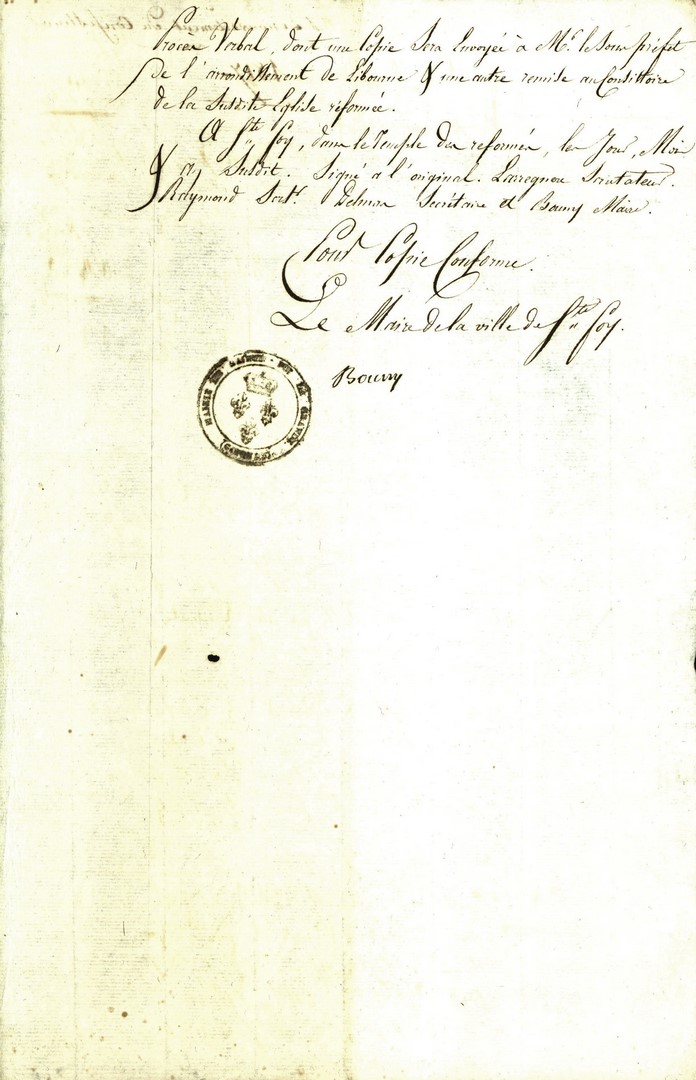 Procès Verbal, dont une Copie Sera Envoyée à Mr. le Sous préfet
De l'arrondissement de Libourne & une autre remise au Consistoire
de la Susdite Eglise réformée.
A Ste. Foy, dans le Temple des réformés, les Jour, Mois
& an Susdit. Signé a l'original. Scrutateur.
Raymond Scr. Delmon Secrétaire et Boumy Maire.
Pour Copie Conforme.
Le Maire de la ville de Ste. Foy.
Boumy
MAIRIE DE